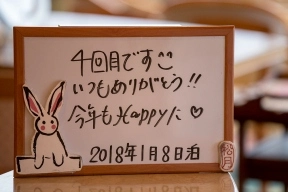 4回目ですこ
いつもありがとう!!
今年もHappyに♡
2018年1月8日泊